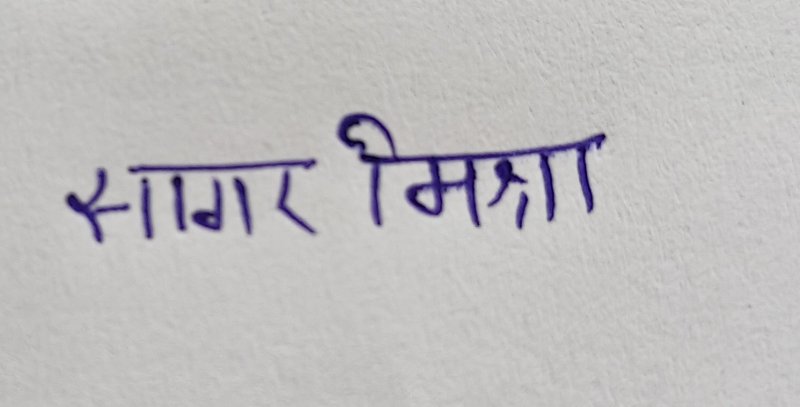 सागर मिश्रा